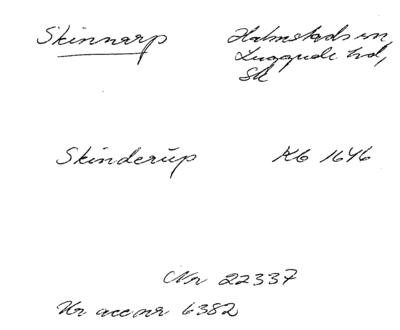 Skinnarp
Halmstads sn,
Luggude hd,
Sk
Skinderup KG 1646
Nr 22337
Ur acc nr 6382